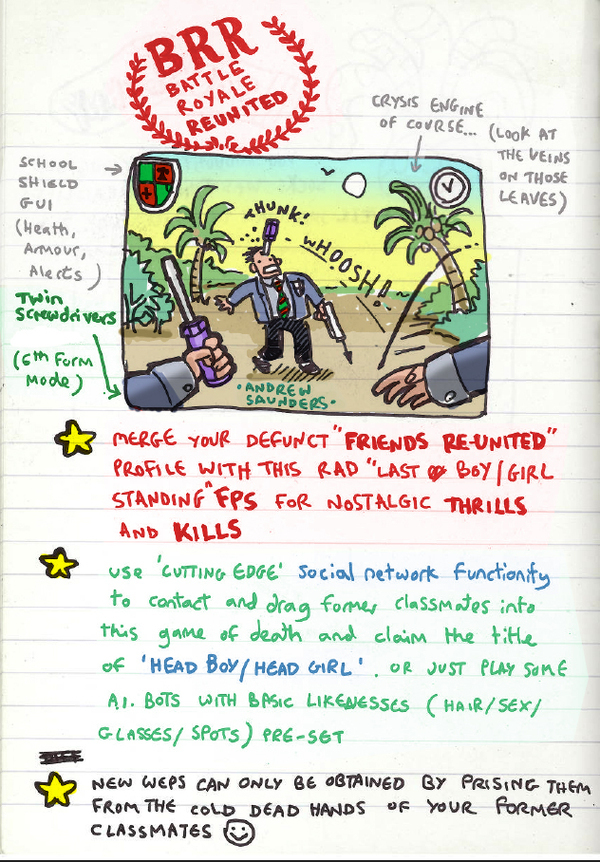 BRR
BATTLE
ROYALE
REUNITED
CRYSIS ENGINE
OF COURSE...
(LOOK AT
THE VEINS
ON THOSE
LEAVES)
SCHOOL
SHIELD
GUI
(Heath,
Armour,
Alerts)
THUNK!
WHOOSH!
Twin
Screwdrivers
(6th Form
Mode)
·ANDREW
SAUNDERS·
MERGE YOUR DEFUNCT "FRIENDS RE-UNITED"
PROFILE WITH THIS RAD "LAST BOY/GIRL
STANDING" FPS FOR NOSTALGIC THRILLS
AND KILLS
USE 'CUTTING EDGE' Social network functionity
to contact and drag former classmates into
this game of death and claim the title
of 'HEAD BOY/HEAD GIRL'. OR JUST PLAY SOME
A.I. BOTS WITH BASIC LIKENESSES (HAIR/SEX/
GLASSES/SPOTS) PRE-SET
NEW WEPS CAN ONLY BE OBTAINED BY PRISING THEM
FROM THE COLD DEAD HANDS OF YOUR FORMER
CLASSMATES